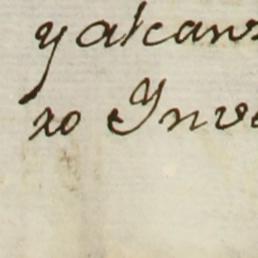 y alcans
xo Inve